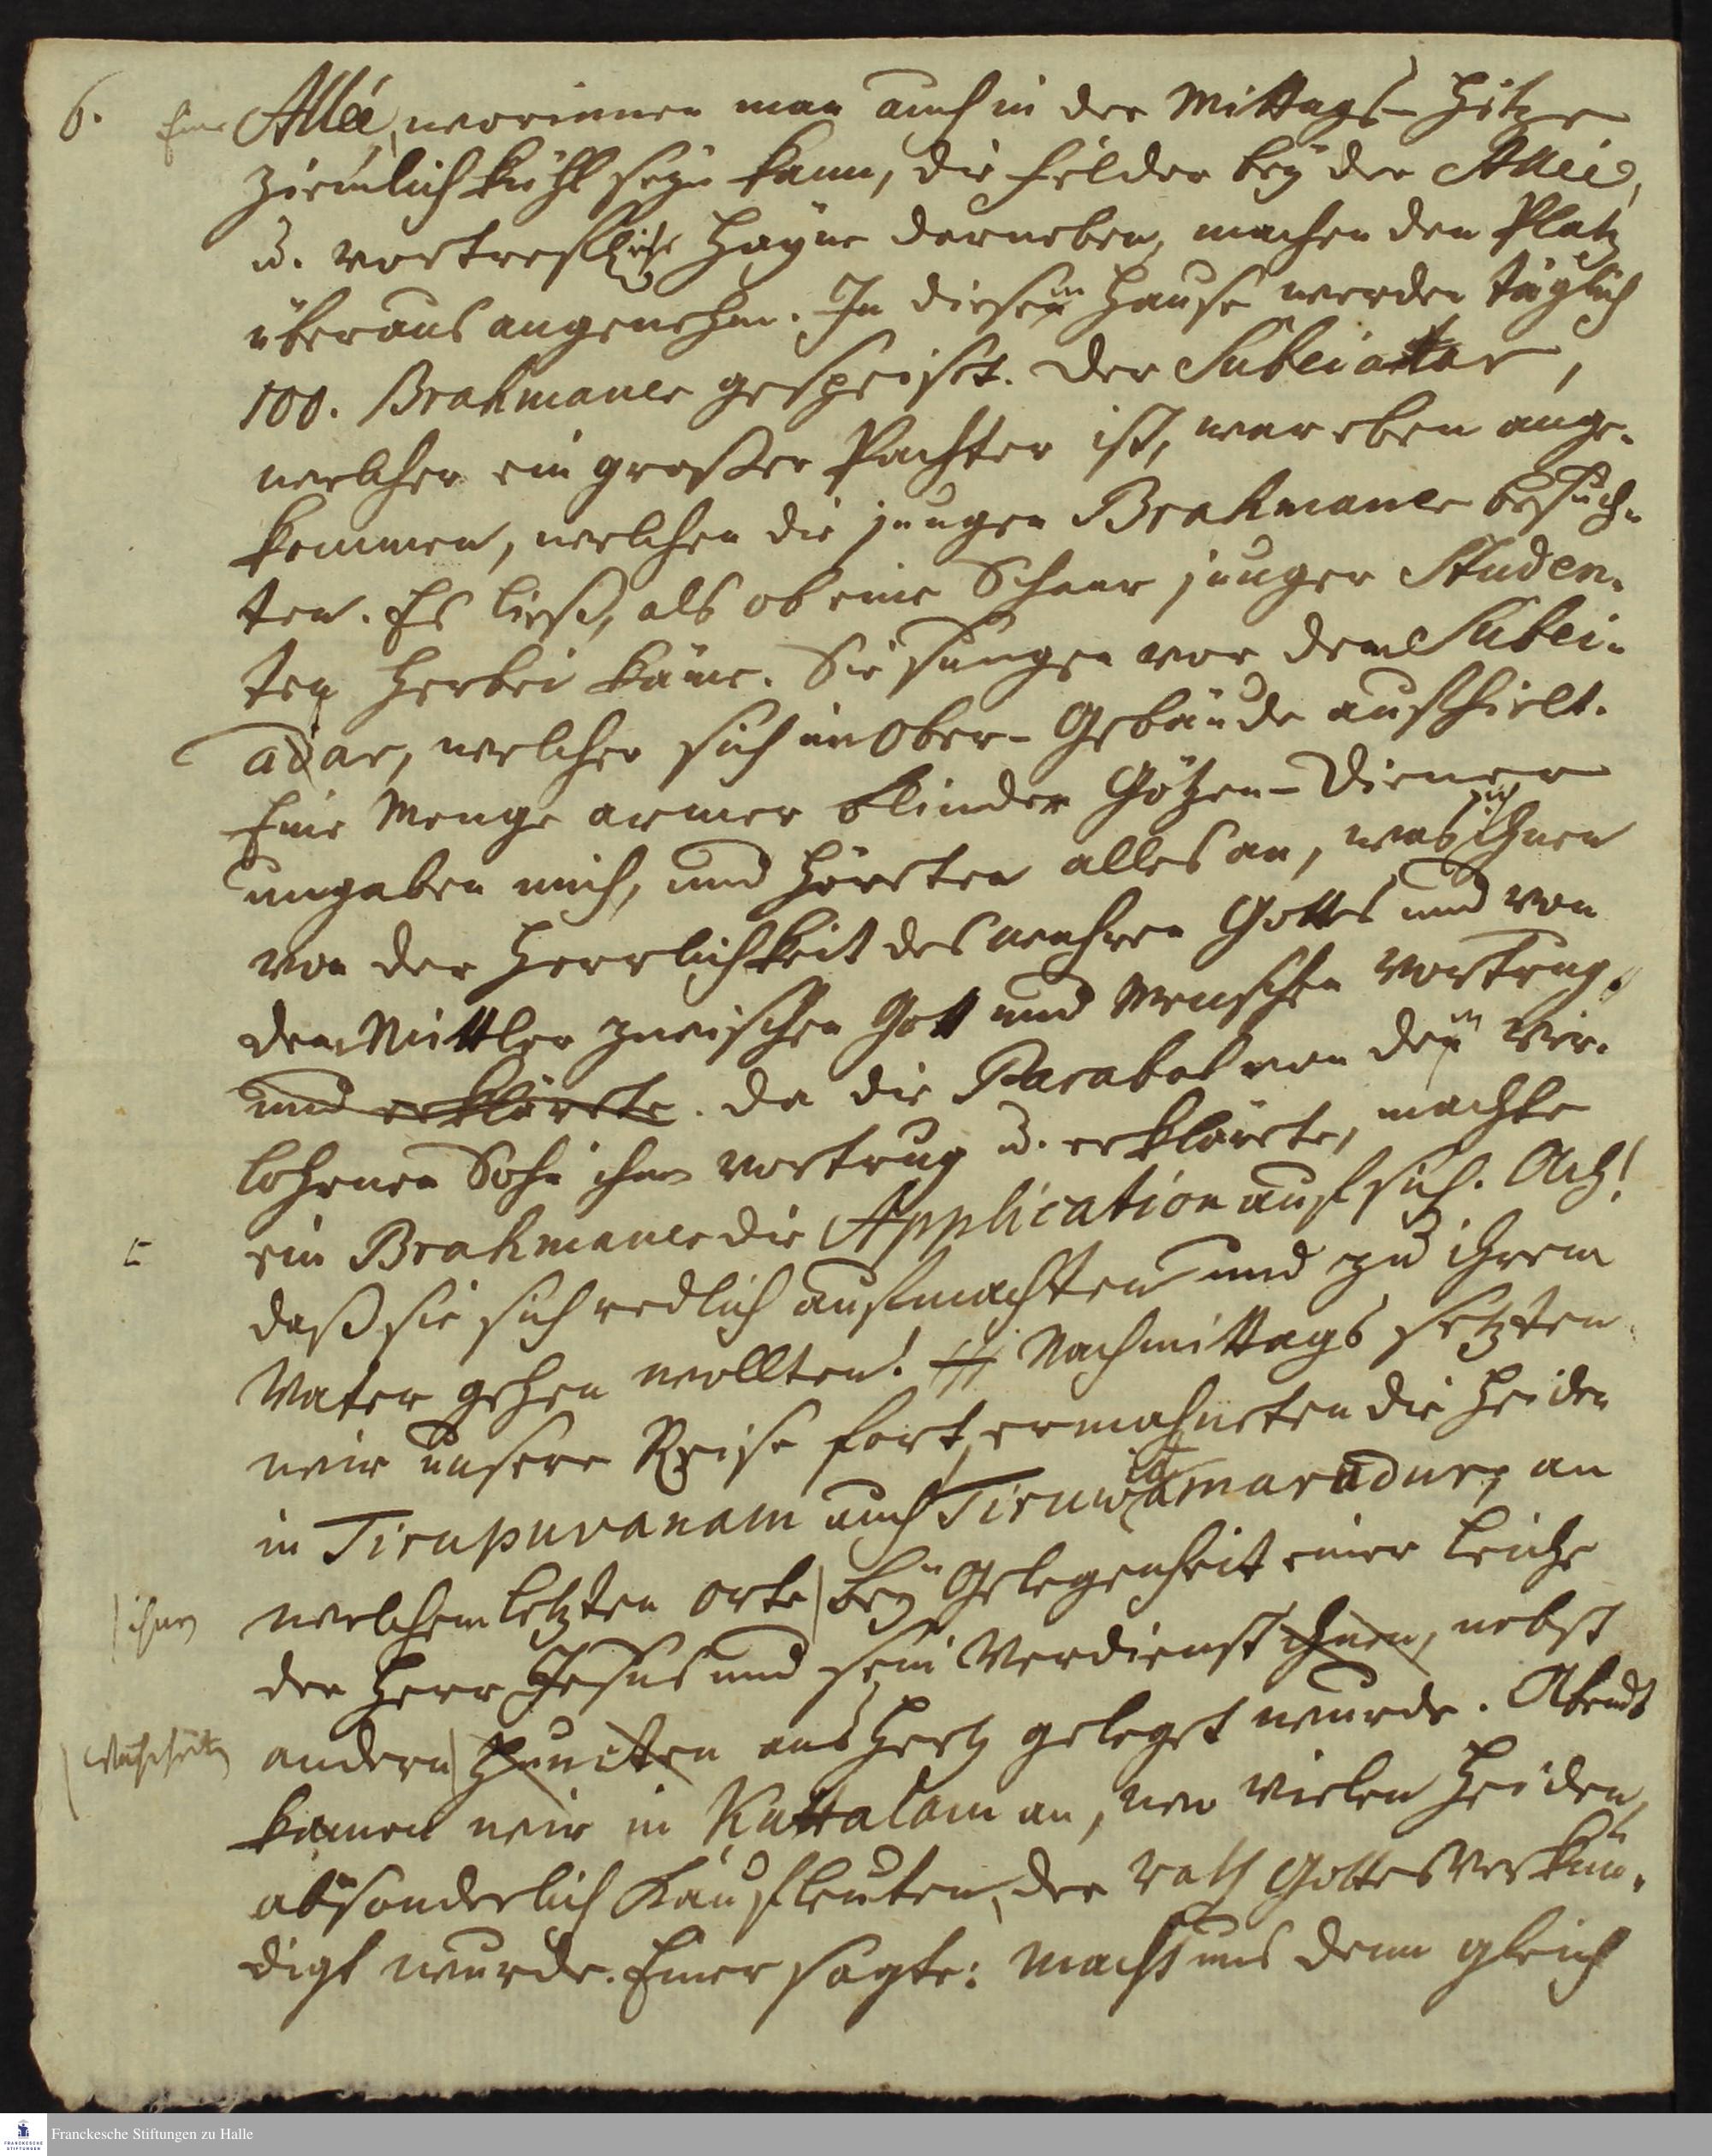 6. Eine Alleé, worinnen man auch in der Mittags-Hitze
ziemlich kühl seyn kann, die Felder bey der Alleé,
u. vortrefliche Hayne darneben, machen den Platz
überaus angenehm. In diesem Hause werden täglich
100. Brahmaner gespeiset. Der Subeiattar,
welcher ein großer Pachter ist, war eben ange-
kommen, welchen die jungen Brahmaner besuch-
ten. Es ließ, als ob eine Schaar junger Studen-
ten herbei käme. Sie sungen vor dem Subei-
adar, welcher sich im Ober-Gebäude aufhielt.
Eine Menge armer blinder Götzen-Diener
umgaben mich, und höreten alles an, was ich ihnen
von der Herrlichkeit des wahren Gottes und von
dem Mittler zwischen Gott und Menschen vortrug.
und erklärete. Da die Parabel von dem ver-
lohrnen Sohn ihm vortrug u. erklärete, machte
ein Brahmaner die Application auf sich. Ach!
daß sie sich redlich aufmachten und zu ihrem
Vater gehen wollten! Nachmittags setzten
wir unsere Reise fort, ermahneten die Heiden
in Tirupuvanam auch Tiruwidamarudur, an
welchem letzten Orte bey Gelegenheit einer Leiche
ihnen
der Herr Jesus und sein Verdienst ihnen, nebst
andern Puncten ans Hertz geleget wurde. Abends
Wahrheiten
kamen wir in Kuttalam an, wo vielen Heiden,
absonderlich Kaufleuten, der Rath Gottes verkün-
digt wurde. Einer sagte: macht uns denn gleich
Franckesche Stiftungen zu Halle
FRANCKESCHE STIFTUNGEN